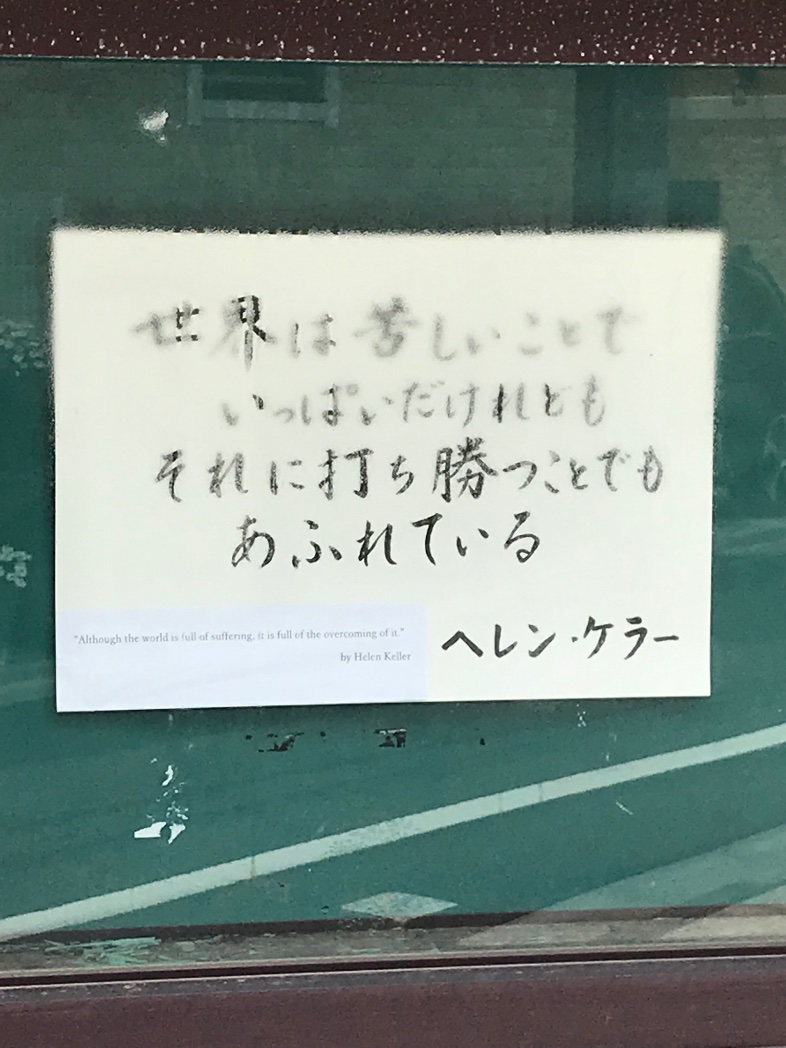 世界は苦しいことで
いっぱいだけれども
それに打ち勝つことでも
あふれている
"Although the world is full of suffering, it is full of the overcoming of it."
by Helen Keller
ヘレン・ケラー